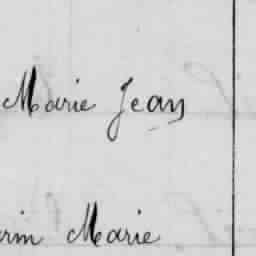 Marie Jean
erin Marie